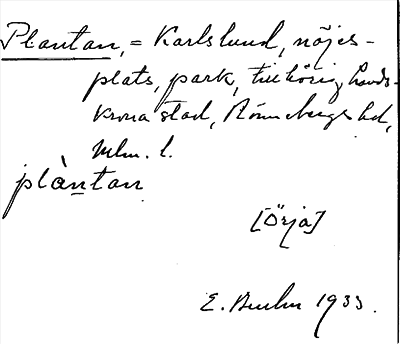 Plantan, = Karlslund, nöjes-
plats, park, tillhörig Lands-
krona stad, Rönnebergs hd,
Mlm. l.
plàntan
[Örja]
E. 1933.